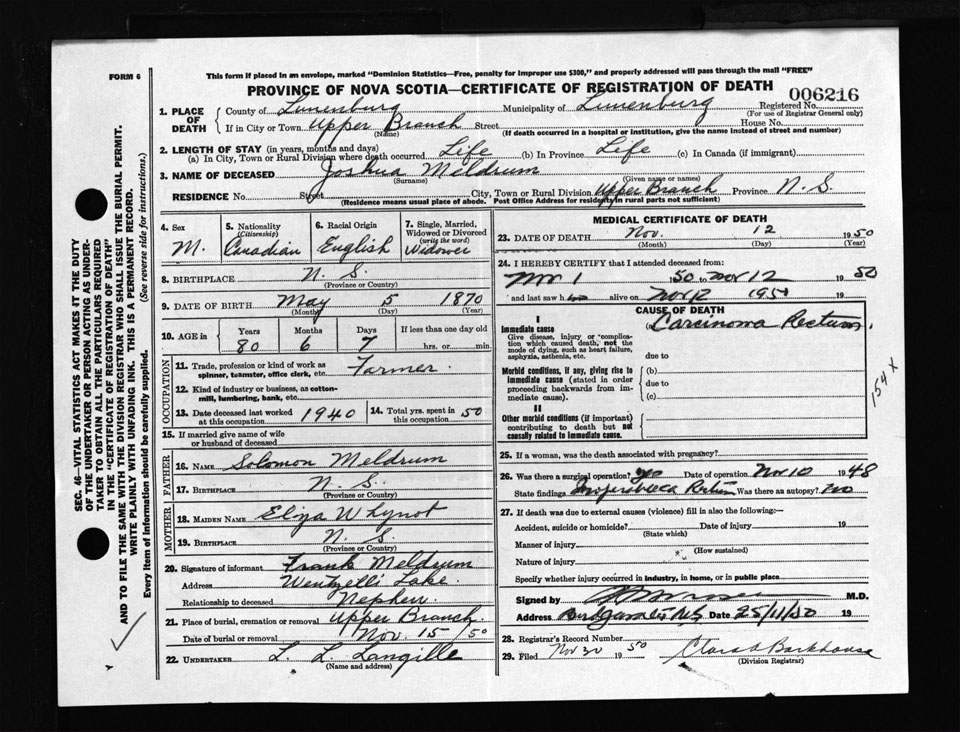 FORM 6
This form if placed in an envelope, marked "Dominion Statistics—Free, penalty for improper use $300," and properly addressed will pass through the mail "FREE"
PROVINCE OF NOVA SCOTIA—CERTIFICATE OF REGISTRATION OF DEATH
006216
1. PLACE OF DEATH County of Lunenburg Municipality of Lunenburg Registered No.
(For use of Registrar General only)
If in City or Town Upper Branch Street House No.
(Name) (If death occurred in a hospital or institution, give the name instead of street and number)
2. LENGTH OF STAY (in years, months and days)
(a) In City, Town or Rural Division where death occurred Life (b) In Province Life (c) In Canada (if immigrant)
3. NAME OF DECEASED Joshua Meldrum
(Surname) (Given name or names)
RESIDENCE No. Street City, Town or Rural Division Upper Branch Province N. S.
(Residence means usual place of abode. Post Office Address for residents in rural parts not sufficient)
4. Sex 5. Nationality (Citizenship) 6. Racial Origin 7. Single, Married, Widowed or Divorced (write the word)
M. Canadian English Widower
8. BIRTHPLACE N. S.
(Province or Country)
9. DATE OF BIRTH May 5 1870
(Month) (Day) (Year)
10. AGE in Years Months Days If less than one day old
80 6 7 hrs. or min.
OCCUPATION
11. Trade, profession or kind of work as spinner, teamster, office clerk, etc. Farmer
12. Kind of industry or business, as cotton-mill, lumbering, bank, etc.
13. Date deceased last worked at this occupation 1940 14. Total yrs. spent in 50
15. If married give name of wife or husband of deceased
FATHER
16. NAME Solomon Meldrum
17. BIRTHPLACE N. S.
(Province or Country)
MOTHER
18. MAIDEN NAME Eliza Whynot
19. BIRTHPLACE N. S.
(Province or Country)
20. Signature of informant Frank Meldrum
Address Wentzells Lake
Relationship to deceased Nephew
21. Place of burial, cremation or removal Upper Branch
Date of burial or removal Nov. 15/50
22. UNDERTAKER L. L. Langille
(Name and address)
MEDICAL CERTIFICATE OF DEATH
23. DATE OF DEATH Nov. 12 1950
(Month) (Day) (Year)
24. I HEREBY CERTIFY that I attended deceased from:
Nov 1 1950 to Nov 12 1950
and last saw h alive on Nov 12 195
CAUSE OF DEATH
I
Immediate cause (a) Carcinoma Rectum.
Give disease, injury or complication which caused death, not the mode of dying, such as heart failure, asphyxia, asthenia, etc.
due to
Morbid conditions, if any, giving rise to immediate cause (stated in order proceeding backwards from immediate cause).
(b)
due to
(c)
II
Other morbid conditions (if important) contributing to death but not causally related to immediate cause.
154 x
25. If a woman, was the death associated with pregnancy?
26. Was there a surgical operation? yes Date of operation Nov 10 1948
State findings Rectum Was there an autopsy? no
27. If death was due to external causes (violence) fill in also the following:—
Accident, suicide or homicide? Date of injury 19
(State which)
Manner of injury
(How sustained)
Nature of injury
Specify whether injury occurred in industry, in home, or in public place
Signed by M.D.
Address N.S. Date 25/11/50 19
28. Registrar's Record Number
29. Filed Nov 30 1950 Clara A Barkhouse
(Division Registrar)
SEC. 46—VITAL STATISTICS ACT MAKES IT THE DUTY
OF THE UNDERTAKER OR PERSON ACTING AS UNDER-
TAKER TO OBTAIN ALL THE PARTICULARS REQUIRED
IN THE "CERTIFICATE OF REGISTRATION OF DEATH"
AND TO FILE THE SAME WITH THE DIVISION REGISTRAR WHO SHALL ISSUE THE BURIAL PERMIT.
WRITE PLAINLY WITH UNFADING INK. THIS IS A PERMANENT RECORD.
Every item of information should be carefully supplied. (See reverse side for instructions.)